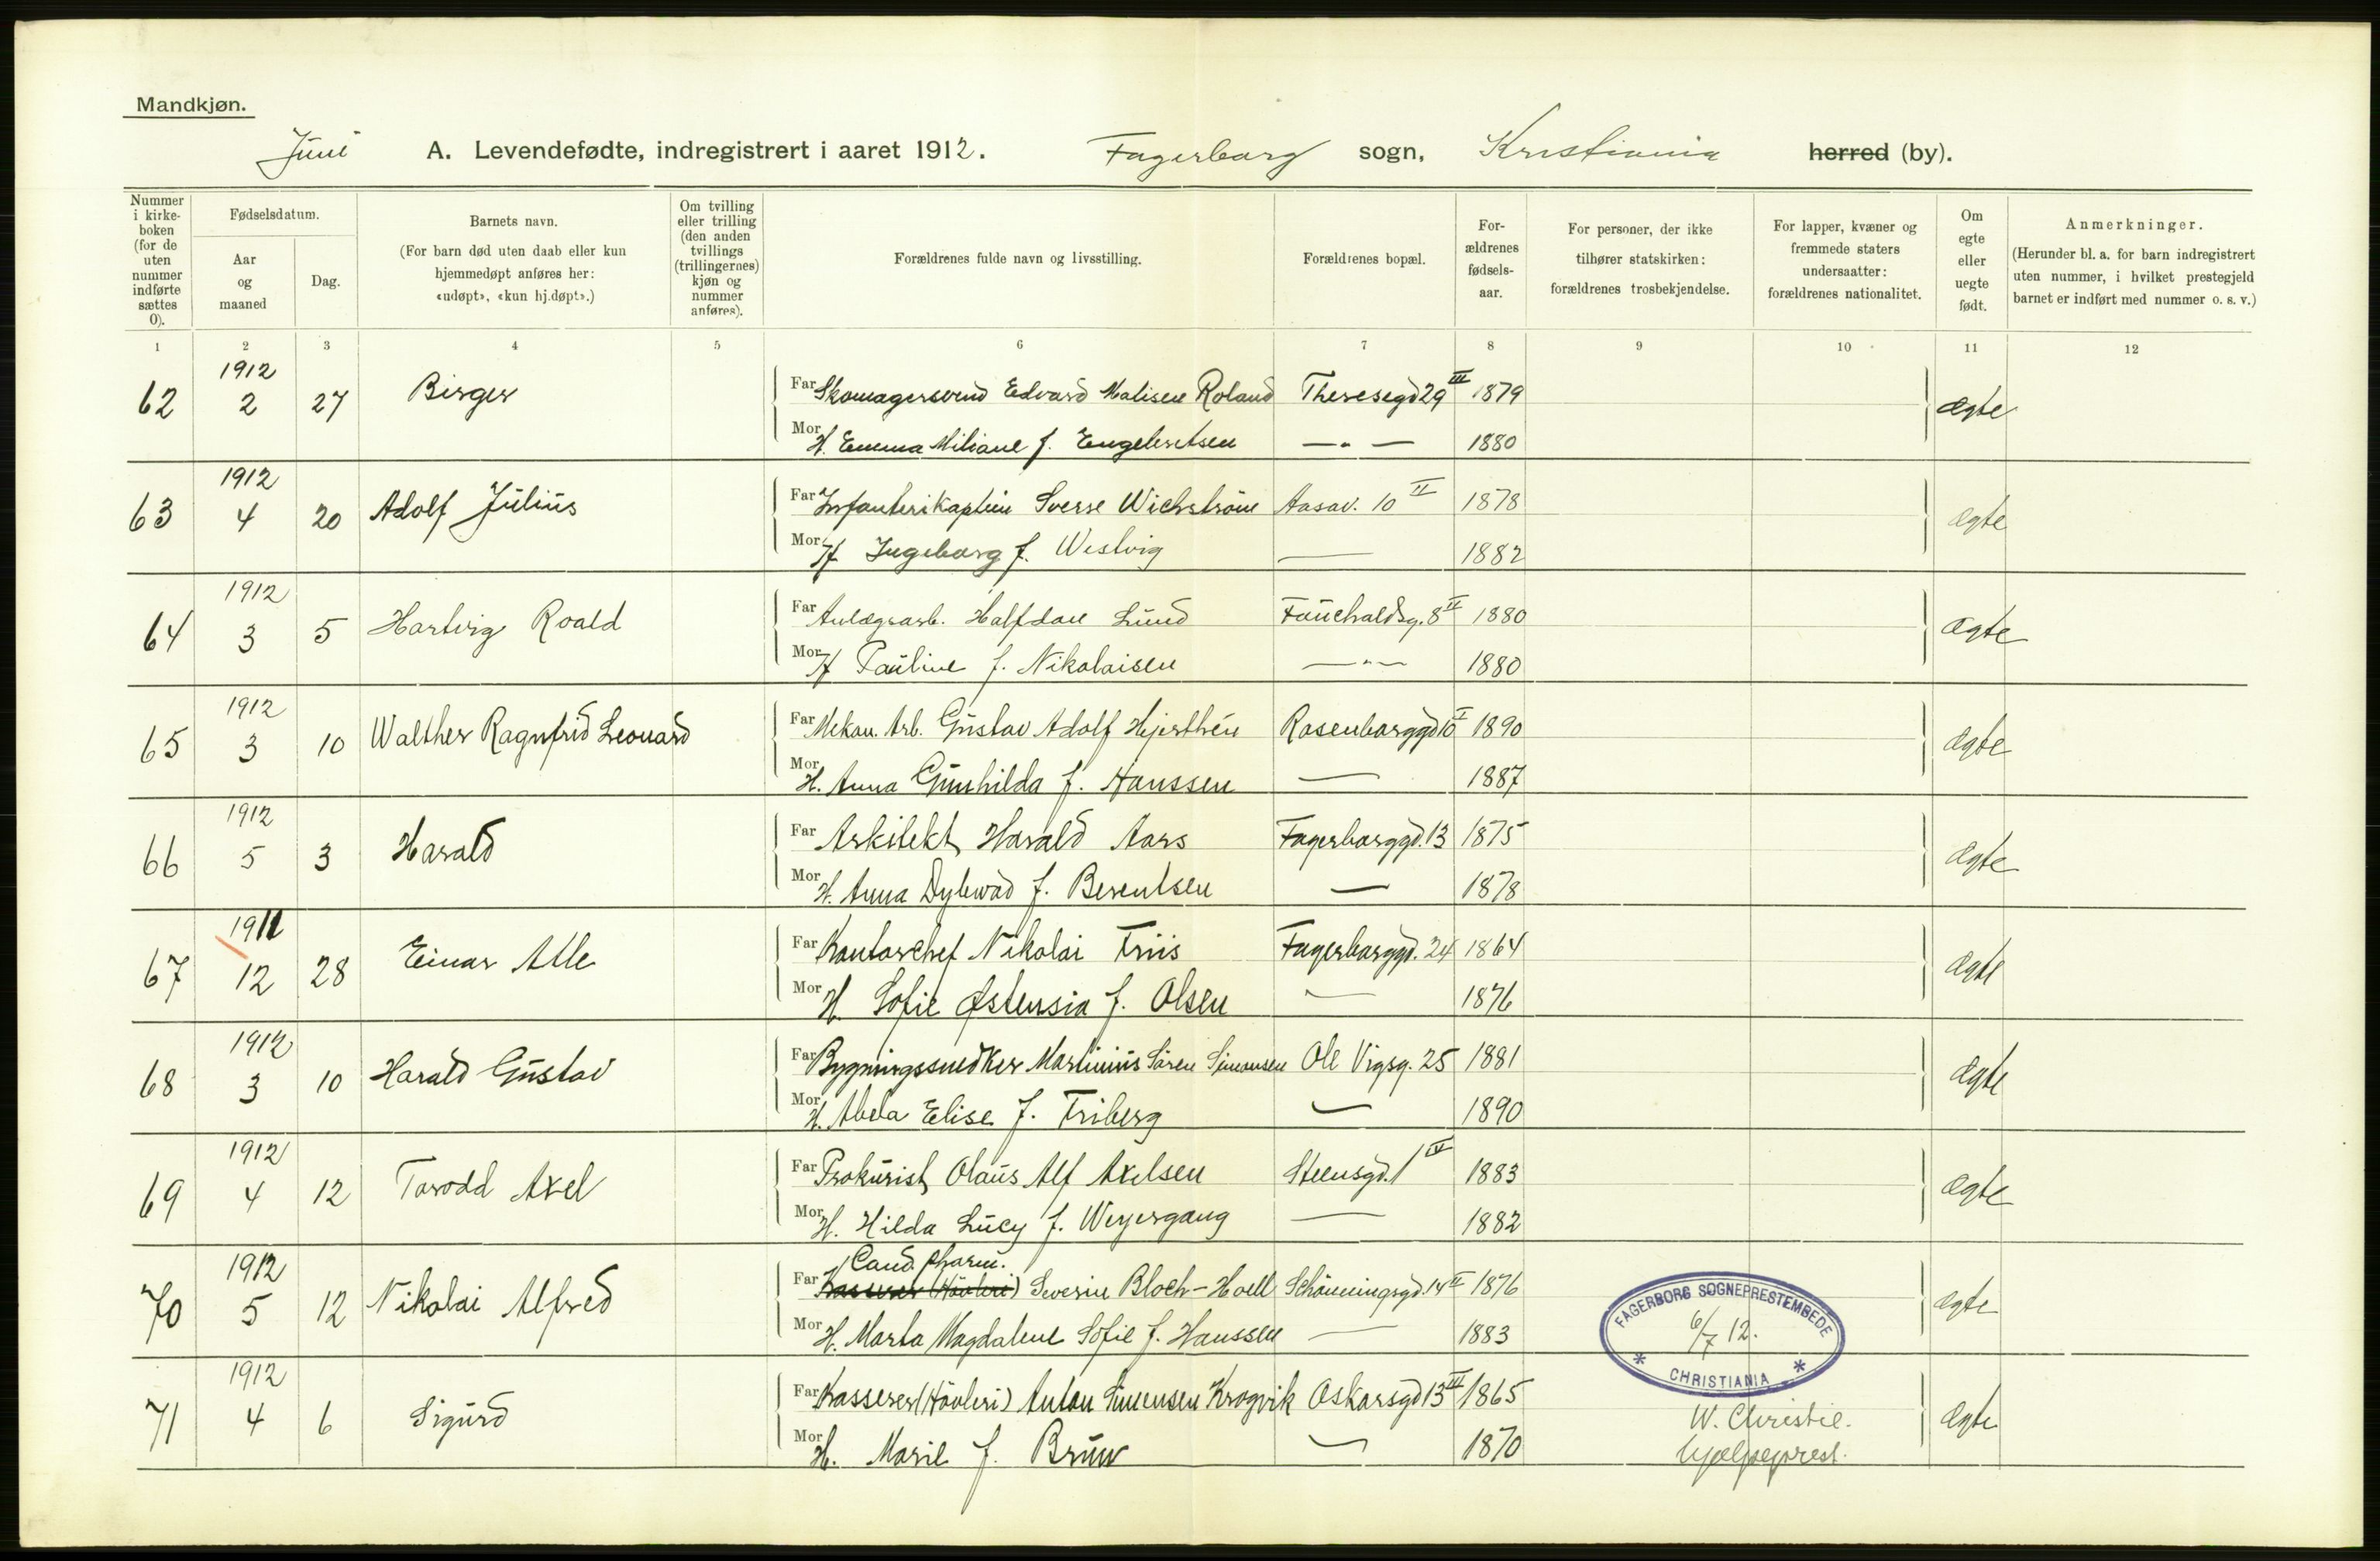 Mandkjøn.
Juni A. Levendefødte, indregistrert i aaret 1912. Fagerborg sogn, Kristiania herred (by).
Nummer i kirke-boken (for de uten nummer indførte sættes 0).
Fødselsdatum.
Aar og maaned
Dag.
Barnets navn.
(For barn død uten daab eller kun hjemmedøpt anføres her: «udøpt», «kun hj.døpt».)
Om tvilling eller trilling (den anden tvillings (trillingernes) kjøn og nummer anføres).
Forældrenes fulde navn og livsstilling.
Forældrenes bopæl.
For-ældrenes fødsels-aar.
For personer, der ikke tilhører statskirken: forældrenes trosbekjendelse.
For lapper, kvæner og fremmede staters undersaatter: forældrenes nationalitet.
Om egte eller uegte født.
Anmerkninger.
(Herunder bl. a. for barn indregistrert uten nummer, i hvilket prestegjeld barnet er indført med nummer o. s. v.)
1 2 3 4 5 6 7 8 9 10 11 12
62 1912 2 27 Birger Far Skomagersvend Edvard Malisen Roland Theresegd 29 III 1879 ægte
Mor H. Emma Miliane f. Engebretsen —„— 1880
63 1912 4 20 Adolf Julius Far Infanterikaptein Sverre Wichstrøm Aasav. 10 II 1878 ægte
Mor H Ingeborg f. Westvig — 1882
64 1912 3 5 Hartvig Roald Far Anlægsarb. Halfdan Lund Fauchaldsg. 8 II 1880 ægte
Mor H Pauline f. Nikolaisen —„— 1880
65 1912 3 10 Walther Ragnfrid Leonard Far Mekan. Arb. Gustav Adolf Hjerthén Rosenborggd 10 I 1890 ægte
Mor H. Anna Gunhilda f. Hanssen — 1887
66 1912 5 3 Harald Far Arkitekt Harald Aars Fagerborggd. 13 1875 ægte
Mor H. Anna Dybwad f. Berentsen — 1878
67 1911 12 28 Einar Atle Far Kontorchef Nikolai Friis Fagerborggd. 24 1864 ægte
Mor H. Sofie Østensia f. Olsen — 1876
68 1912 3 10 Harald Gustav Far Bygningssnedker Martinius Sören Simonsen Ole Vigsg. 25 1881 ægte
Mor H. Abela Elise f. Friberg — 1890
69 1912 4 12 Torodd Axel Far Prokurist Olaus Alf Axelsen Steensgd. 1 IV 1883 ægte
Mor H. Hilda Lucy f. Weyergang — 1882
Cand. pharm.
70 1912 5 12 Nikolai Alfred Far Kasserer (Høvleri) Severin Bloch-Hoell Schønningsgd. 14 II 1876 ægte
Mor H. Marta Magdalene Sofie f. Hanssen — 1883
71 1912 4 6 Sigurd Far Kasserer (Høvleri) Anton Simensen Krogvik Oskarsgd 13 III 1865 ægte
Mor H. Marie f. Bruun — 1870
FAGERBORG SOGNEPRESTEMBEDE
6/7 12.
* CHRISTIANIA *
W. Christie.
hjelpeprest.